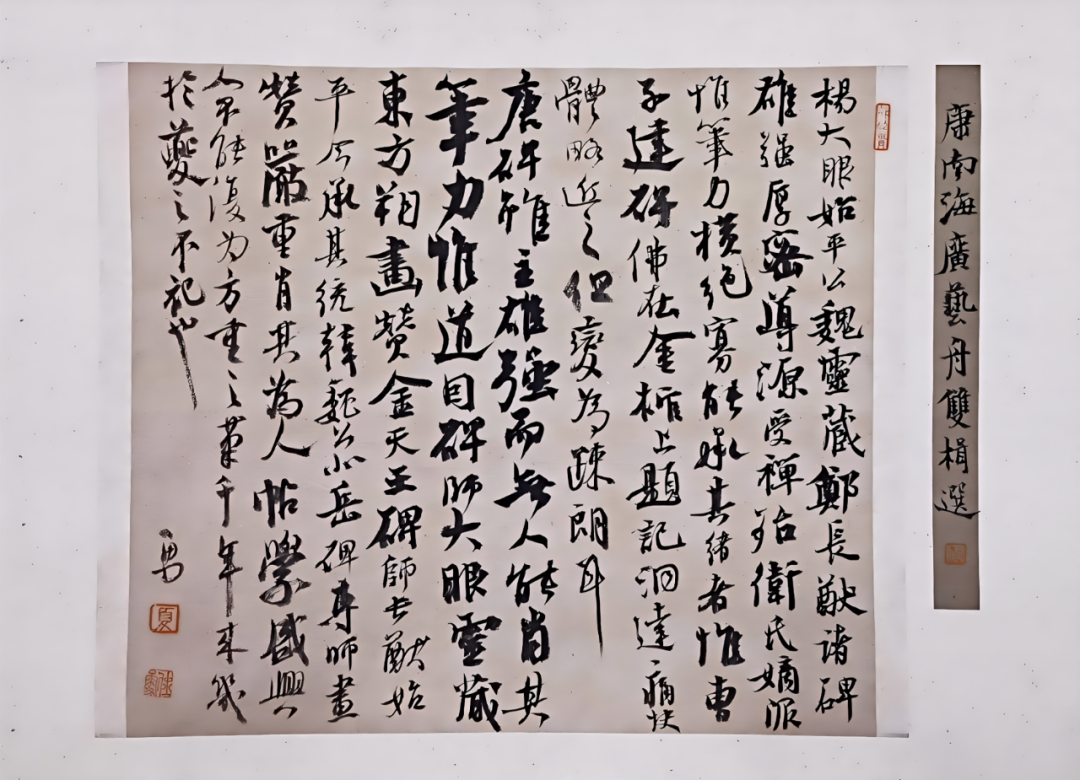 康南海廣藝舟雙楫選
楊大眼始平公魏靈藏鄭長猷諸碑
雄強厚密導源受禪殆衛氏嫡派
惟筆力橫絕寡能承其緒者惟曹
子建碑佛在金棺上題記洞達痛快
體略近之但變為疎朗耳
唐碑雖主雄強而無人能肖其
筆力惟道因碑師大眼靈藏
東方朔畫贊金天王碑師長猷始
平今承其統韓魏公北岳碑專師畫
贊嚴重肖其為人帖學盛興
人不能復為方重之筆千年來幾
於夔之不祀也
勇
夏